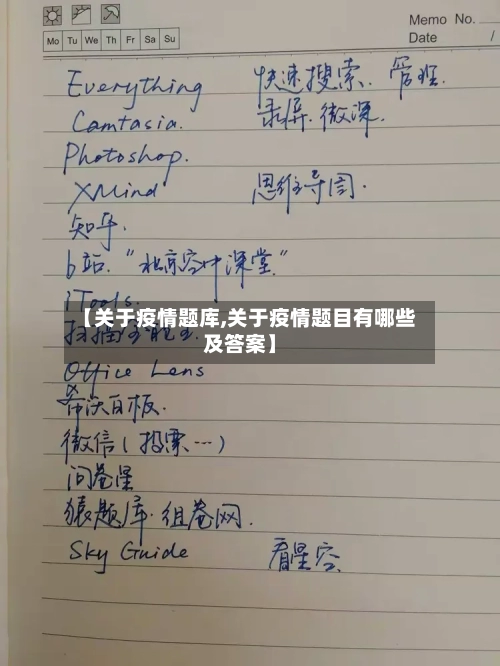 Memo No.
Mo Tu We Th Fr Sa Su
Date /
Everything 快速搜索. 管理.
Camtasia. 录屏. 微课.
Photoshop.
XMind 思维导图.
知乎.
b站. 课堂"
iTools.
【关于疫情题库,关于疫情题目有哪些
及答案】
扫描全能王.
Office Lens
希沃白板.
微信(投票…)
问卷星
猿题库. 组卷网.
Sky Guide 看星空